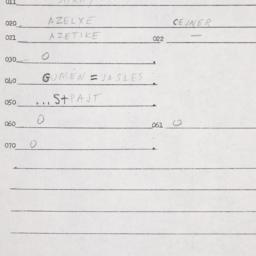 011
020 AZELXE CEJNER
021 AZETIKE 022 —
030 O
040 GUMEN = JASLES
050 ...St PAJT
060 O 061 O
070 O